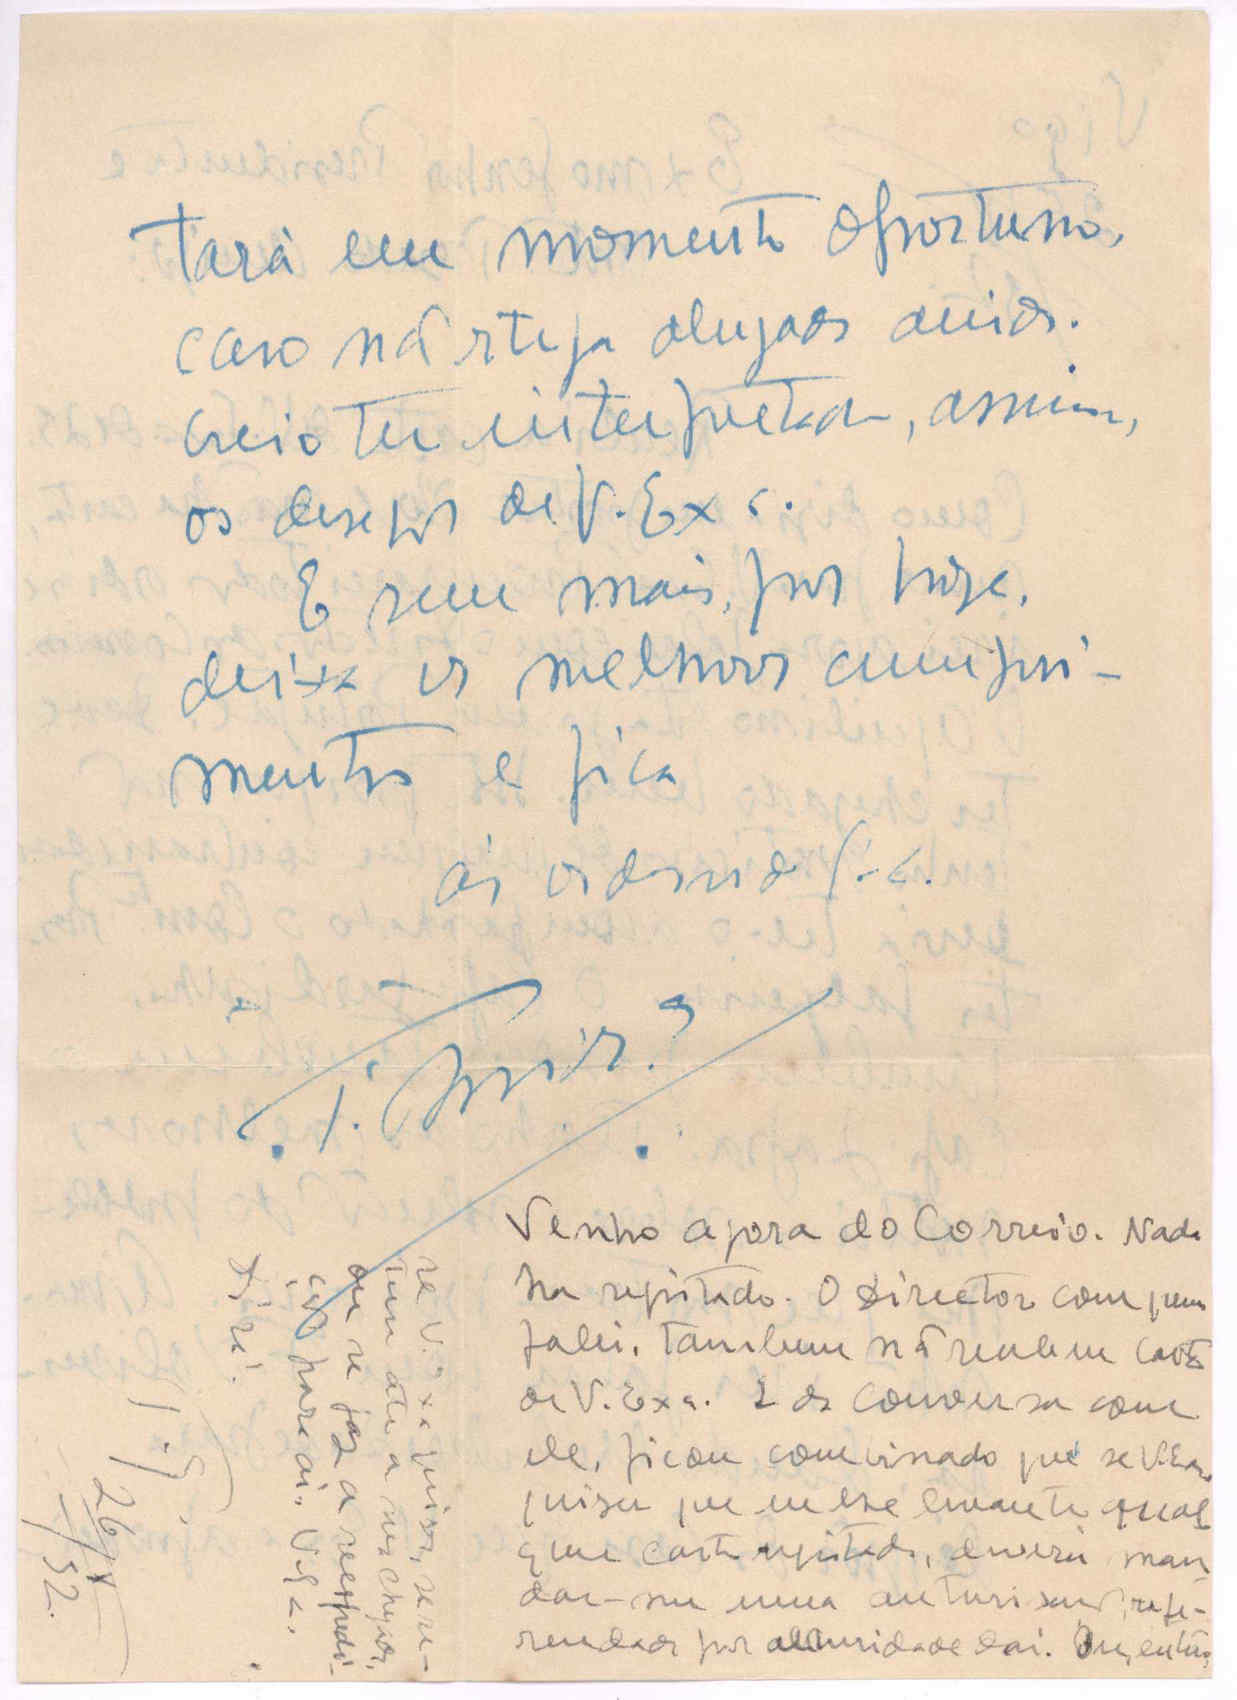 tará em momento oportuno,
caso não esteja alugada ainda.
Creio ter interpretado, assim,
os desejos de V. Exa.
E sem mais, por hoje,
deixa os melhores cumpri-
mentos e fica
ás ordens de
Venho agora do Correio. Nada
ha registado. O Director com quem
falei, tambem não recebeu carta
de V. Exa. E da conversa com
ele, ficou combinado que se V. Exa
quiser que eu lhe levante qual
quer carta registada, deverá man
dar-me uma autorisação, refe-
rendada por autoridade daí. Ou, então,
se V. Exa quiser, rete-
nem até a sua chegada,
ou se faz a reexpedi-
ção para aí. V. Exa.
dirá.
26
/32.